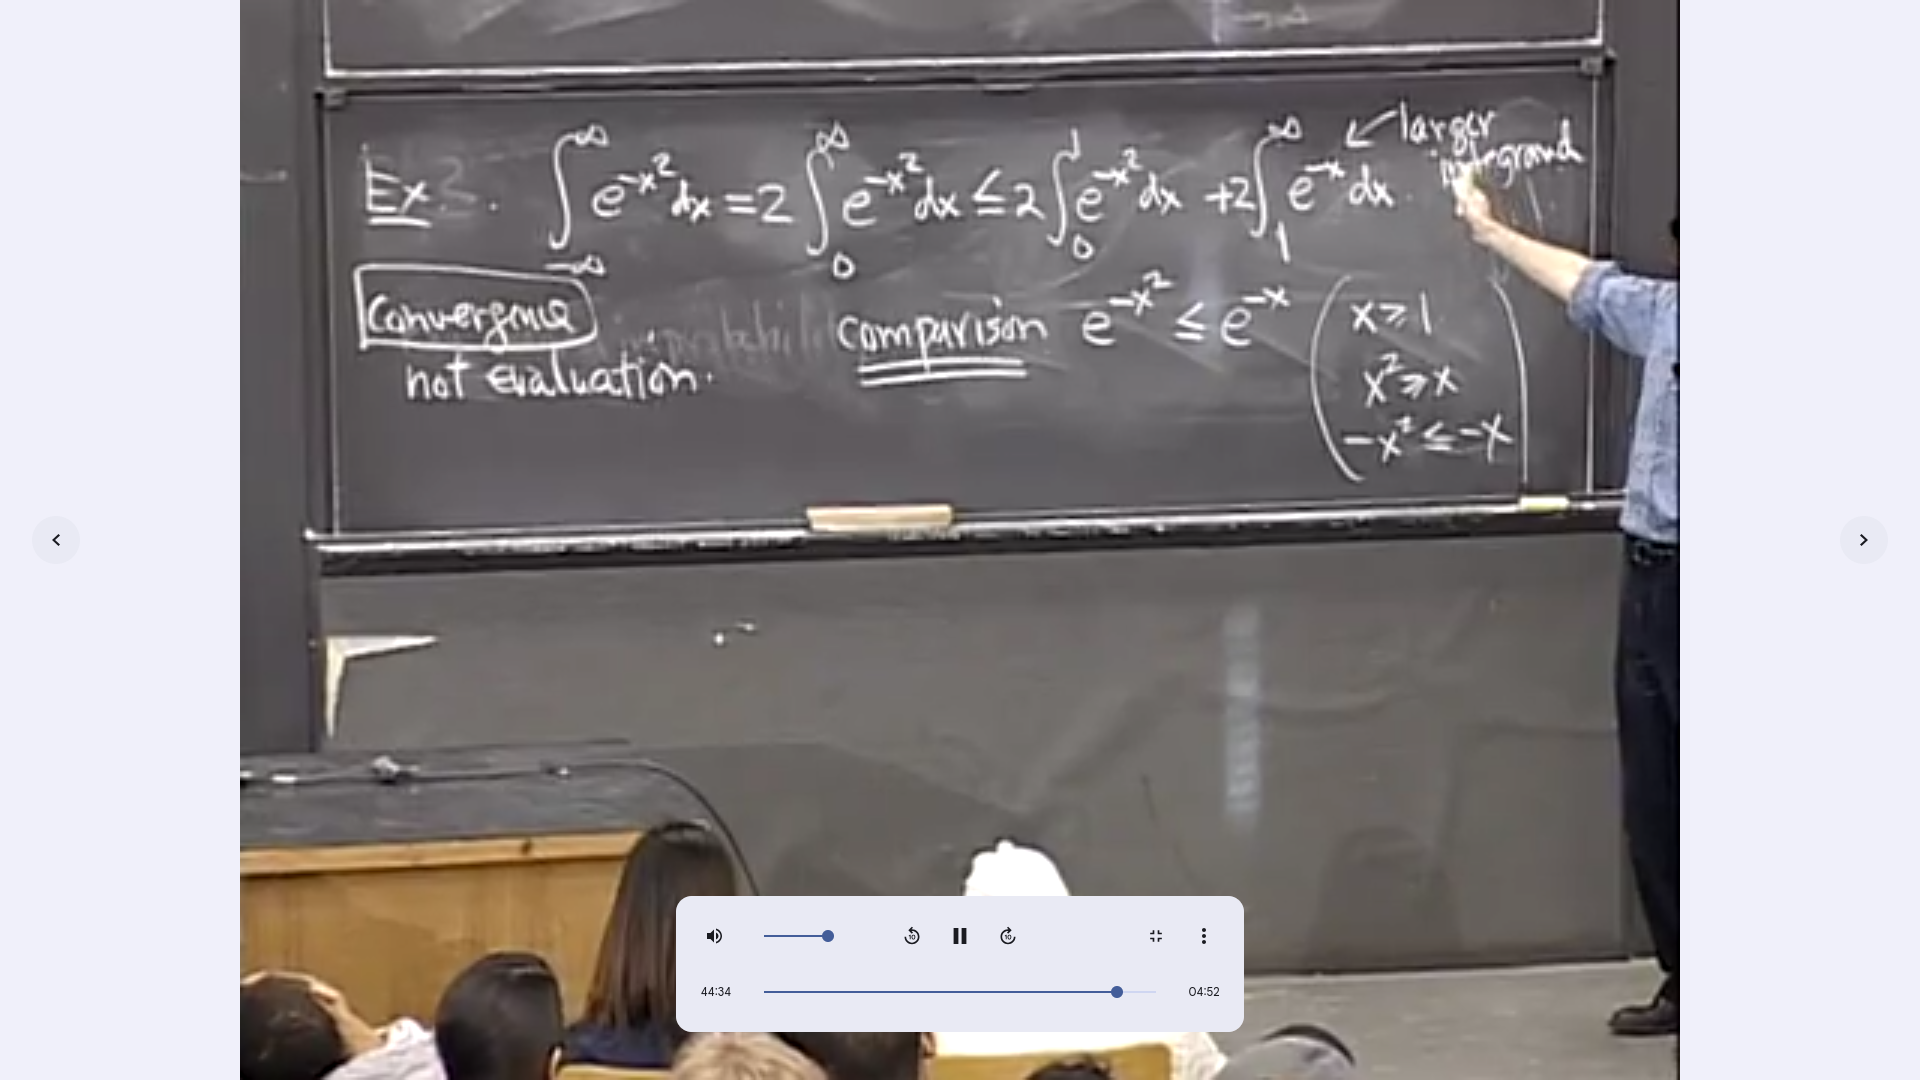 Ex. ∫_{-∞}^{∞} e^{-x²}dx = 2 ∫_0^∞ e^{-x²}dx ≤ 2∫_0^1 e^{-x²}dx + 2∫_1^∞ e^{-x}dx ↙ larger integrand
Convergence
not evaluation.
comparison e^{-x²} ≤ e^{-x}
x ≥ 1
x² ≥ x
-x² ≤ -x
10
10
44:34
04:52